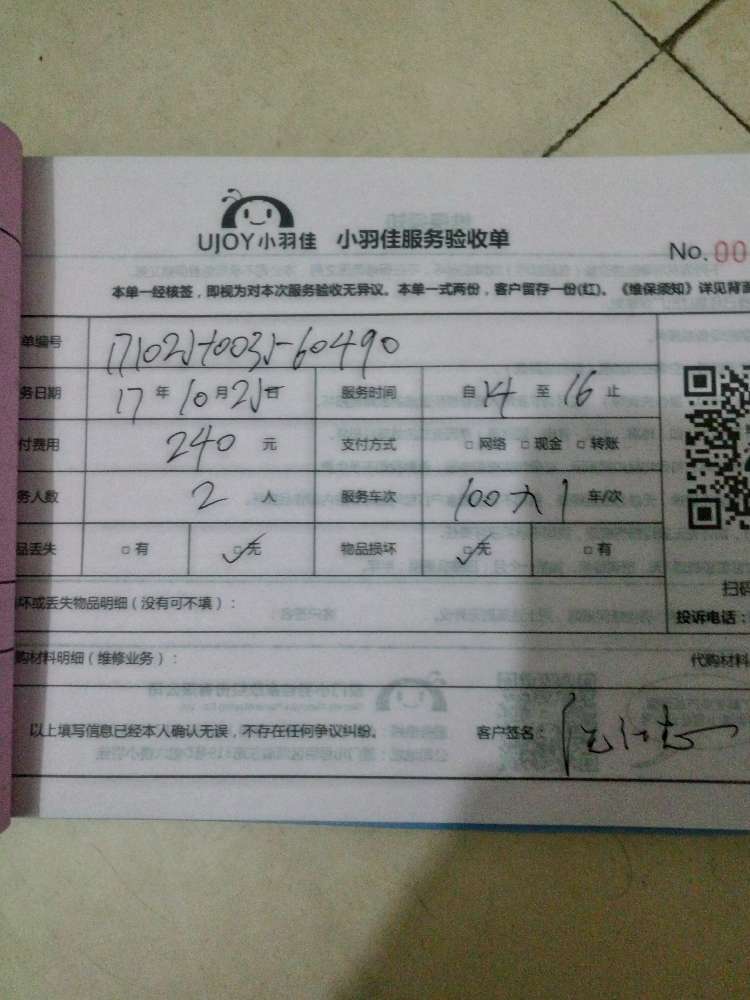 UJOY小羽佳 小羽佳服务验收单
No. 00
本单一经核签，即视为对本次服务验收无异议。本单一式两份，客户留存一份(红)。《维保须知》详见背面
单编号 171025+0035-60490
务日期 17 年 10 月 25 日 服务时间 自 14 至 16 止
付费用 240 元 支付方式 □ 网络 □ 现金 □ 转账
务人数 2 人 服务车次 1 车/次
品丢失 □ 有 □ 无 物品损坏 □ 无 □ 有
坏或丢失物品明细（没有可不填）：
扫码
投诉电话：
购材料明细（维修业务）：
代购材料
以上填写信息已经本人确认无误，不存在任何争议纠纷。 客户签名：